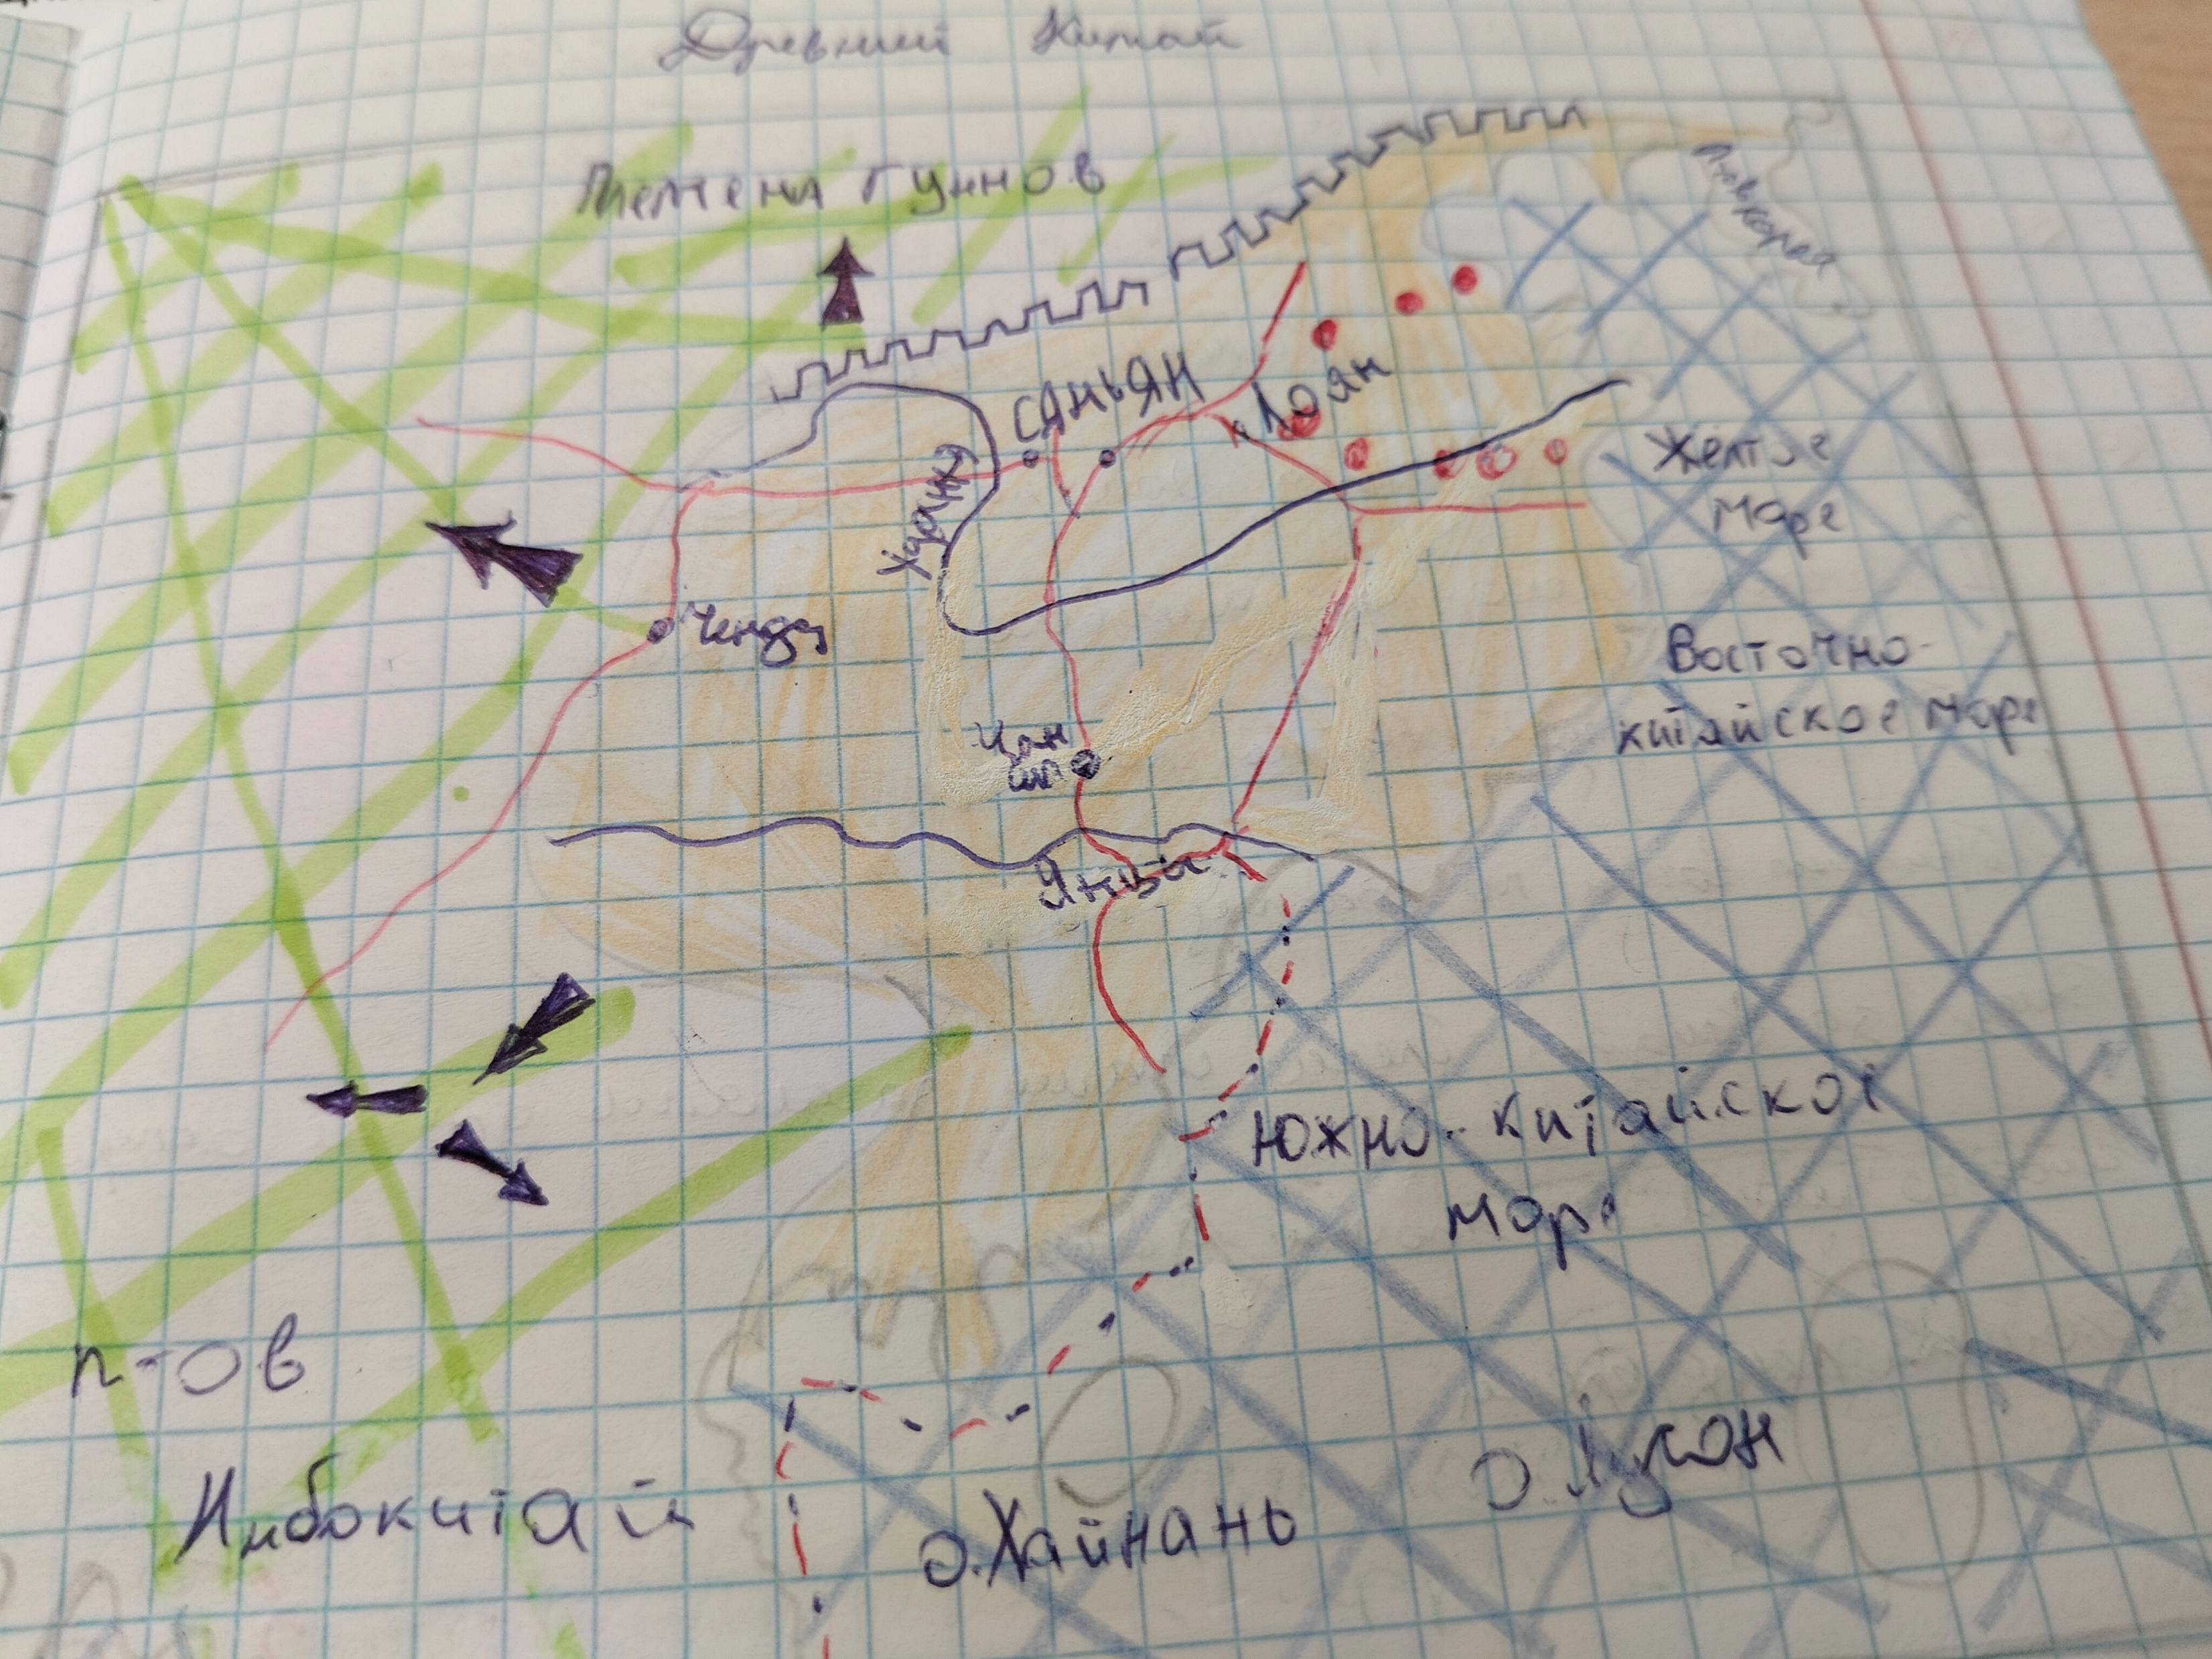 Древний Китай
Племена гуннов
п-ов Корея
Саньян
Лоян
Хуанхэ
Желтое
море
Ченду
Восточно-
китайское море
Чан
ша
Янцзы
Южно-китайское
море
п-ов
Индокитай
о. Хайнань
о. Лусон